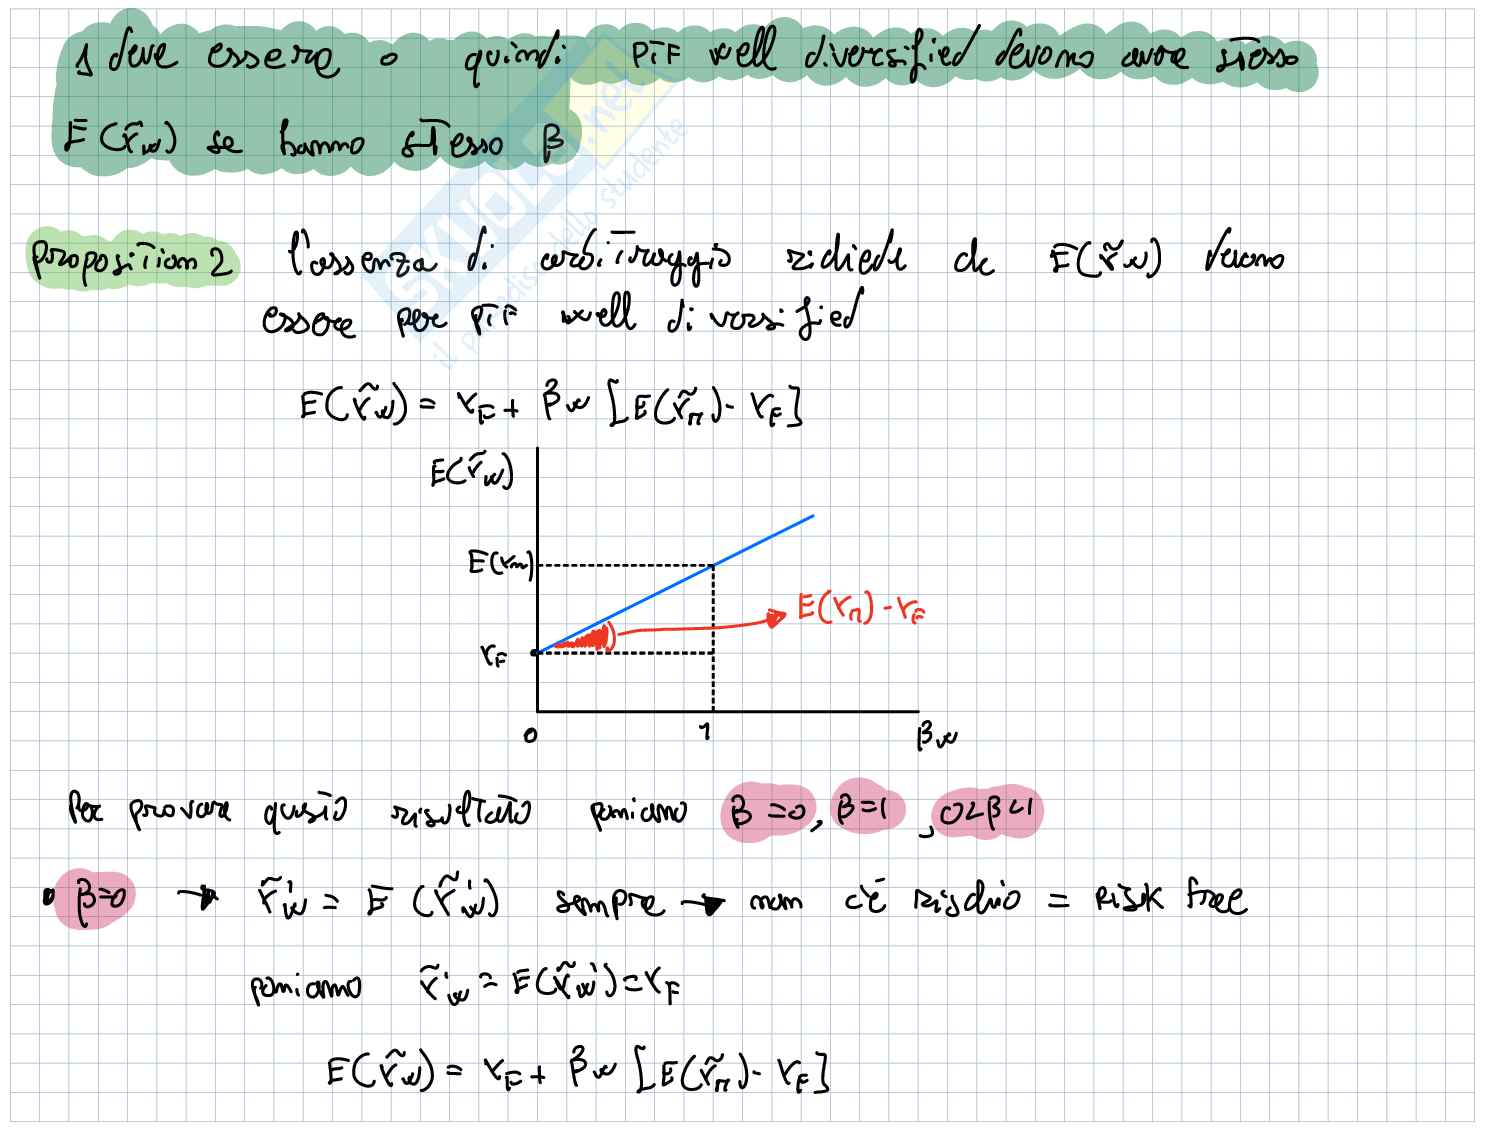 Δ deve essere 0 quindi PTF well diversified devono avere stesso
E(r̃w) se hanno stesso β
proposition 2 l'assenza di arbitraggio richiede che E(r̃w) devono
essere per PTF well diversified
E(r̃w) = rF + βw [E(r̃M) - rF]
E(r̃w)
E(rm)
E(rM) - rF
rF
0 1 βw
Per provare questo risultato poniamo β=0, β=1, 0<β<1
• β=0 → r̃'w = E(r̃'w) sempre → non c'è rischio = RISK free
poniamo r̃'w = E(r̃'w) = rF
E(r̃w) = rF + βw [E(r̃M) - rF]
SKUOLA.net
il paradiso dello studente